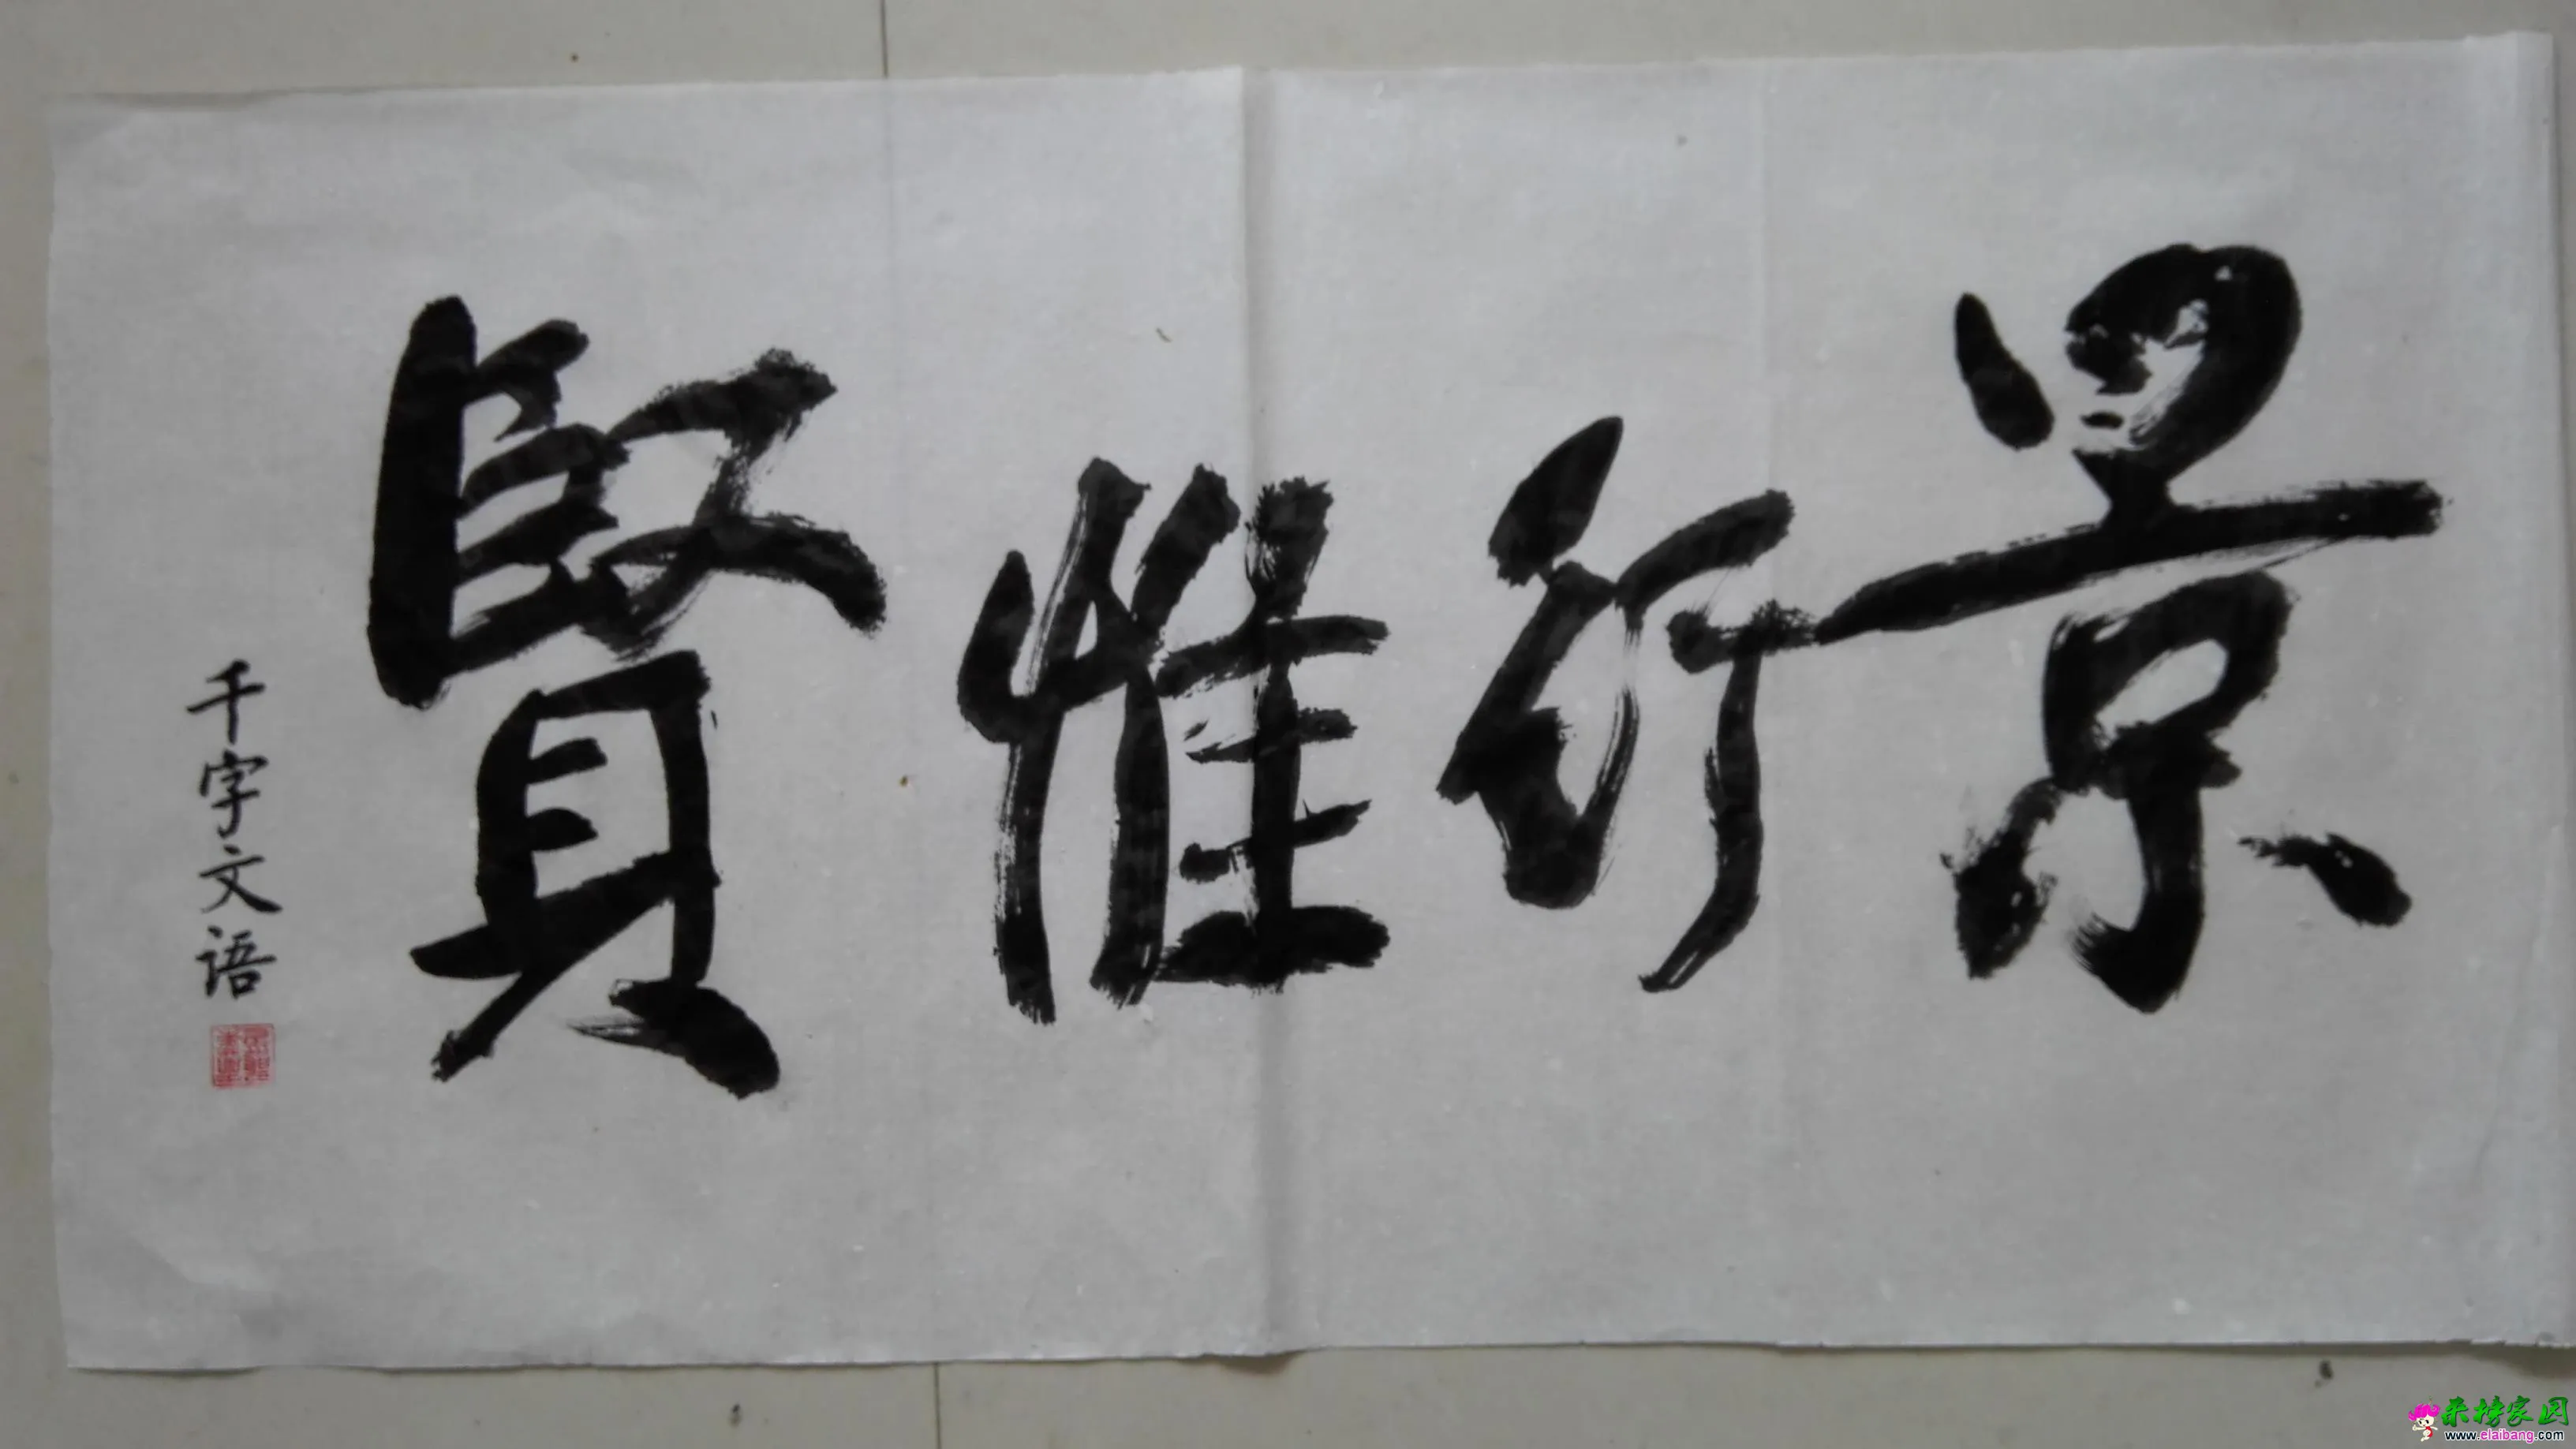 景行惟賢
千字文语
来榜家园
www.elaibang.com